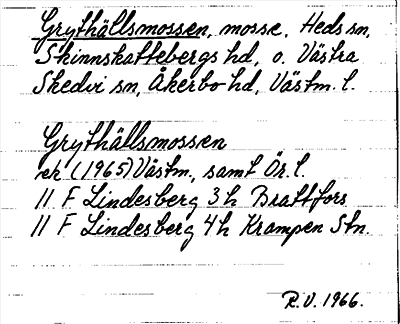 Grythällsmossen, mosse, Heds sn,
Skinnskattebergs hd, o. Västra
Skedvi sn, Åkerbo hd, Västm. l.
Grythällsmossen
ek (1965) Västm., samt Ör. l.
11 F Lindesberg 3h Brattfors
11 F Lindesberg 4h Krampen Stn.
R.V. 1966.